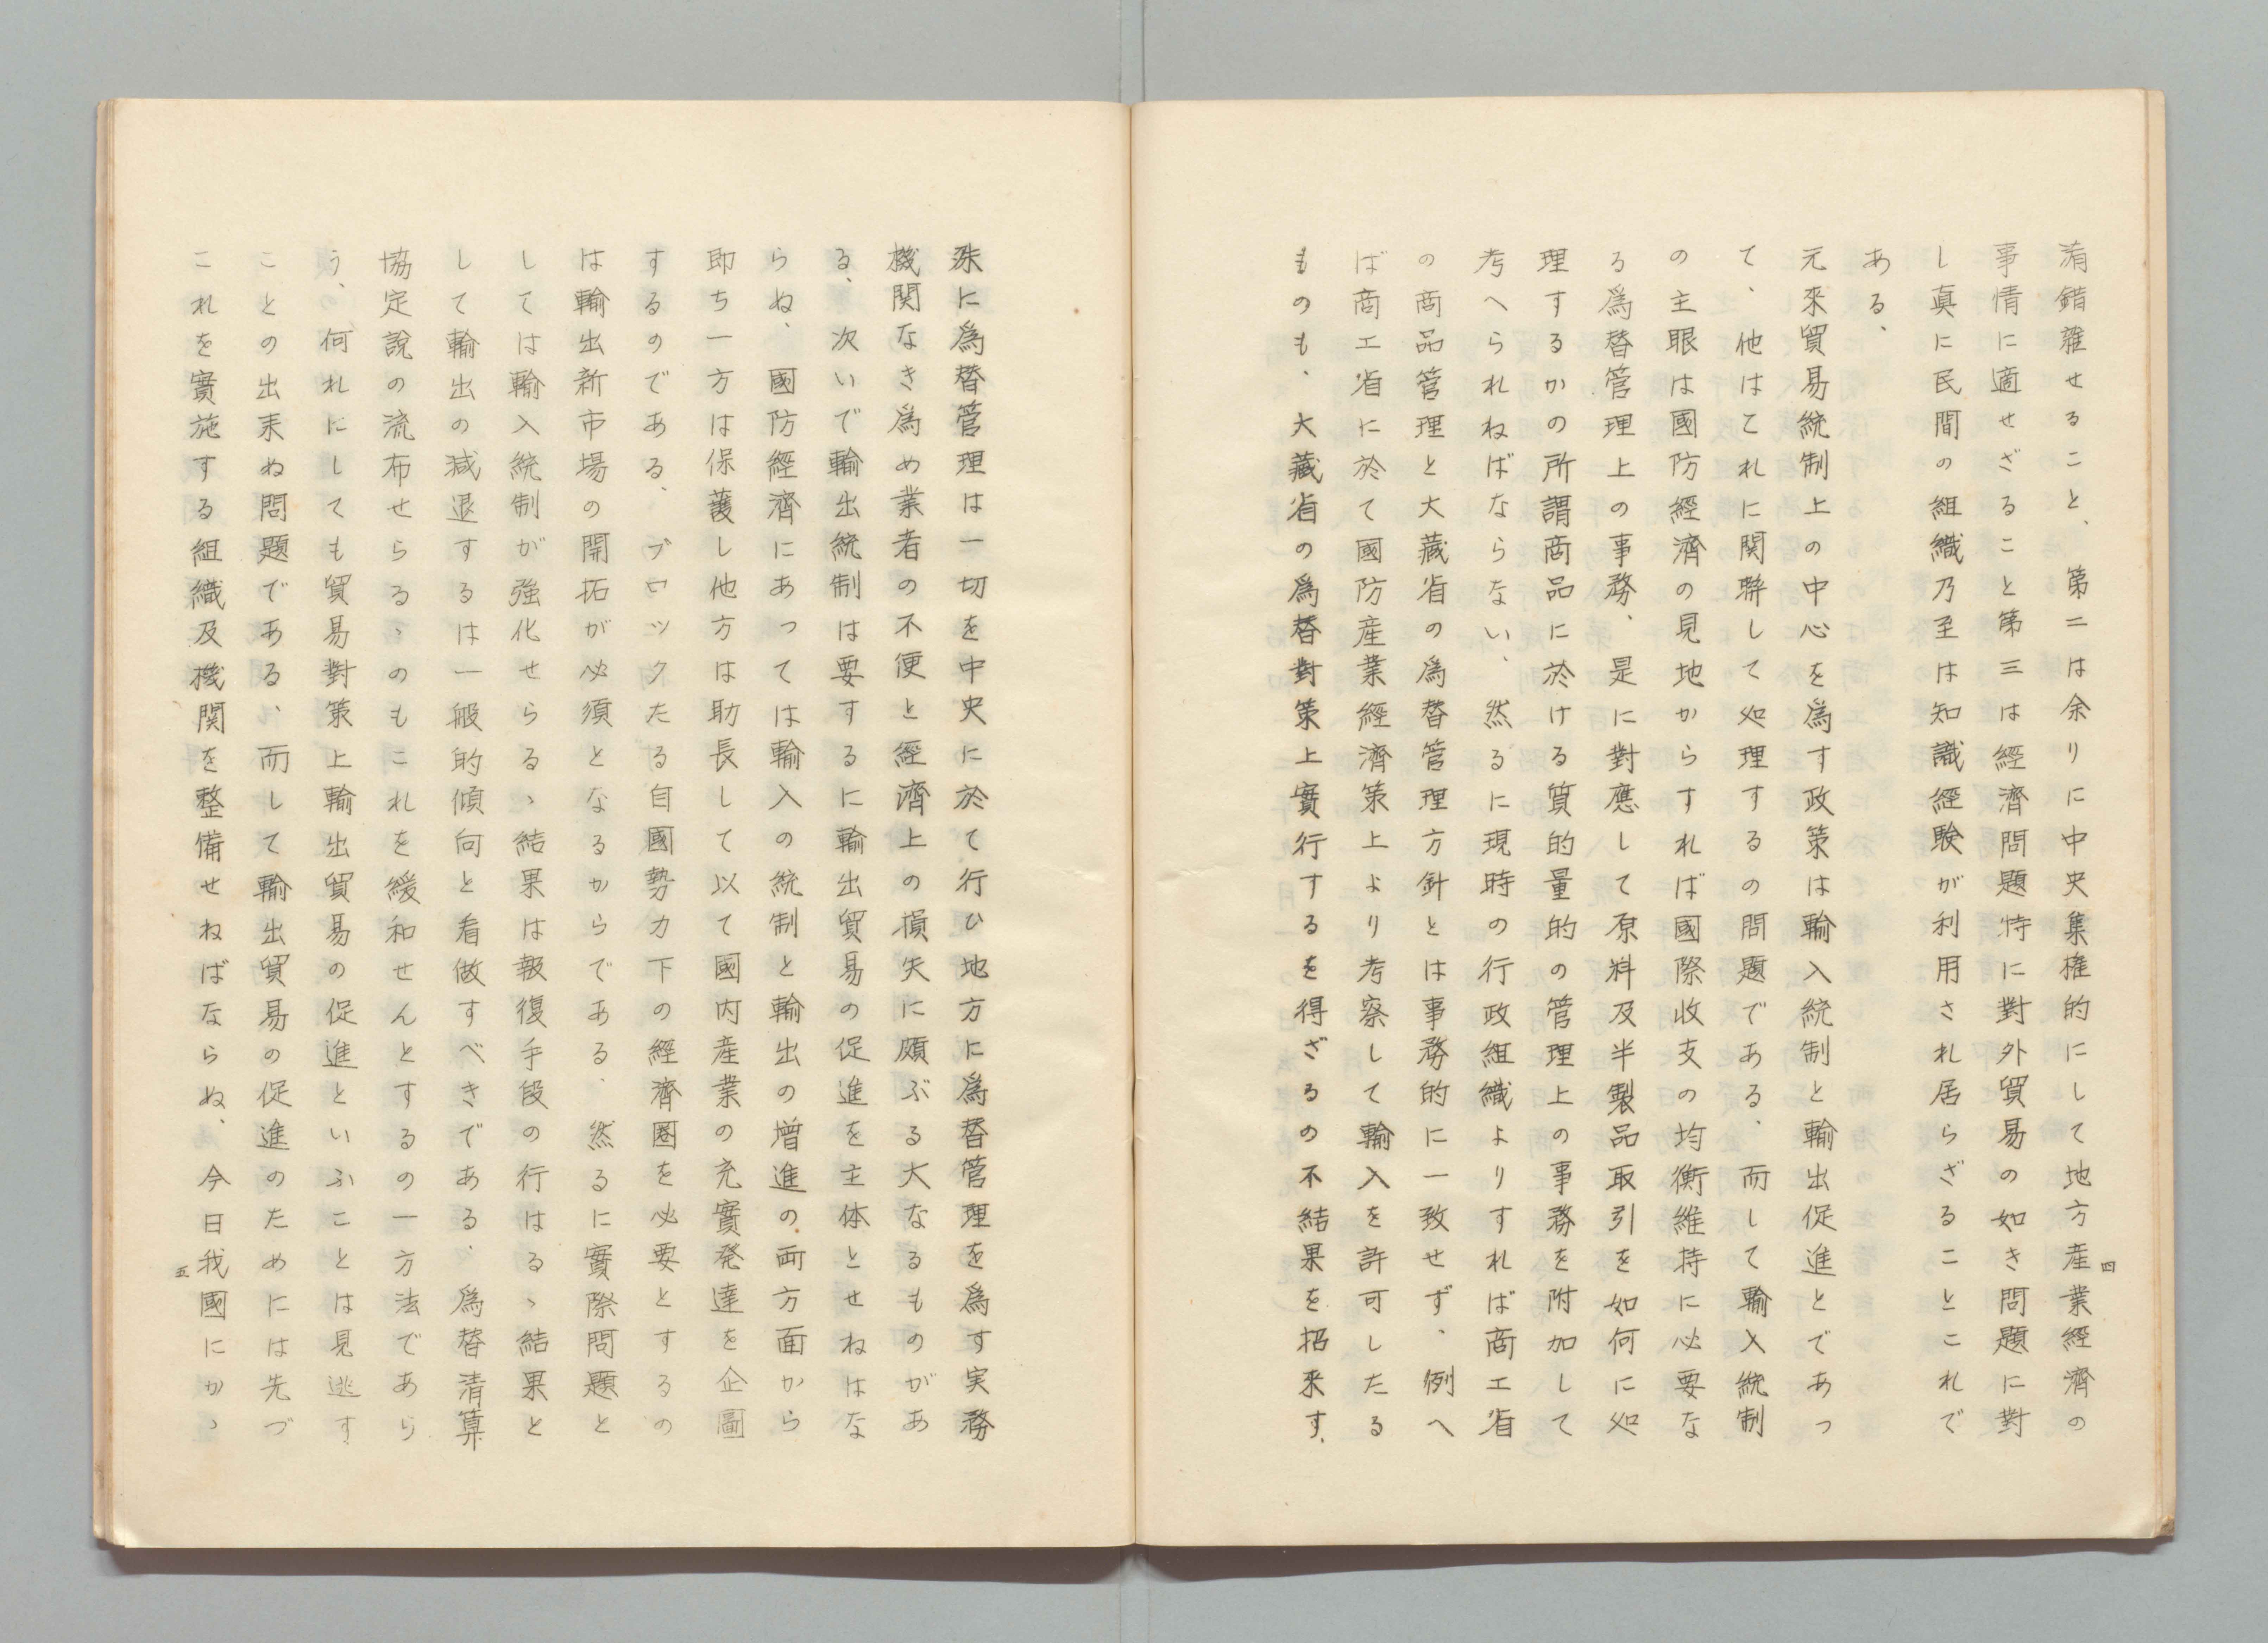 淆錯雜せること、第二は余りに中央集権的にして地方産業經濟の
事情に適せざること第三は經濟問題特に對外貿易の如き問題に對
し真に民間の組織乃至は知識経験が利用され居らざることこれで
ある、
元來貿易統制上の中心を爲す政策は輸入統制と輸出促進とであつ
て、他はこれに関聯して処理するの問題である、而して輸入統制
の主眼は國防經濟の見地からすれば國際收支の均衡維持に必要な
る爲替管理上の事務、是に對應して原料及半製品取引を如何に処
理するかの所謂商品に於ける質的量的の管理上の事務を附加して
考へられねばならない、然るに現時の行政組織よりすれば商工省
の商品管理と大藏省の爲替管理方針とは事務的に一致せず、例へ
ば商工省に於て國防産業經濟策上より考察して輸入を許可したる
ものも、大藏省の爲替對策上實行するを得ざるの不結果を招来す、
四
殊に爲替管理は一切を中央に於て行ひ地方に爲替管理を爲す実務
機関なき爲め業者の不便と經濟上の損失に頗ぶる大なるものがあ
る、次いで輸出統制は要するに輸出貿易の促進を主体とせねはな
らぬ、國防經濟にあつては輸入の統制と輸出の増進の両方面から
即ち一方は保護し他方は助長して以て國内産業の充實発達を企圖
するのである、ブロックたる自國勢力下の經濟圏を必要とするの
は輸出新市場の開拓が必須となるからである、然るに實際問題と
しては輸入統制が強化せらるゝ結果は報復手段の行はるゝ結果と
して輸出の減退するは一般的傾向と看做すべきである、爲替清算
協定説の流布せらるゝのもこれを緩和せんとするの一方法であら
う、何れにしても貿易對策上輸出貿易の促進といふことは見逃す
ことの出来ぬ問題である、而して輸出貿易の促進のためには先づ
これを實施する組織及機関を整備せねばならぬ、今日我國にかゝ
五